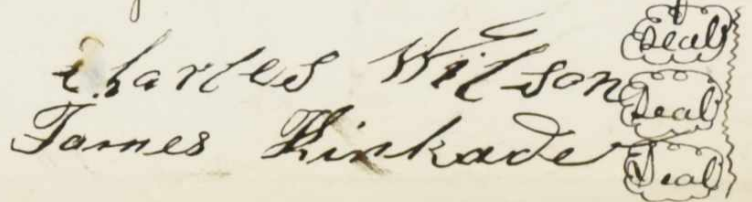 Seal
Charles Wilson Seal
James Kinkade Seal